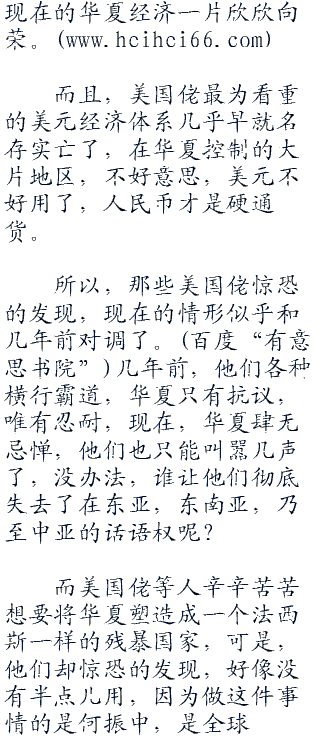 现在的华夏经济一片欣欣向
荣。(www.hcihci66.com)
而且，美国佬最为看重
的美元经济体系几乎早就名
存实亡了，在华夏控制的大
片地区，不好意思，美元不
好用了，人民币才是硬通
货。
所以，那些美国佬惊恐
的发现，现在的情形似乎和
几年前对调了。(百度“有意
思书院”)几年前，他们各种
横行霸道，华夏只有抗议，
唯有忍耐，现在，华夏肆无
忌惮，他们也只能叫嚣几声
了，没办法，谁让他们彻底
失去了在东亚，东南亚，乃
至中亚的话语权呢？
而美国佬等人辛辛苦苦
想要将华夏塑造成一个法西
斯一样的残暴国家，可是，
他们却惊恐的发现，好像没
有半点儿用，因为做这件事
情的是何振中，是全球